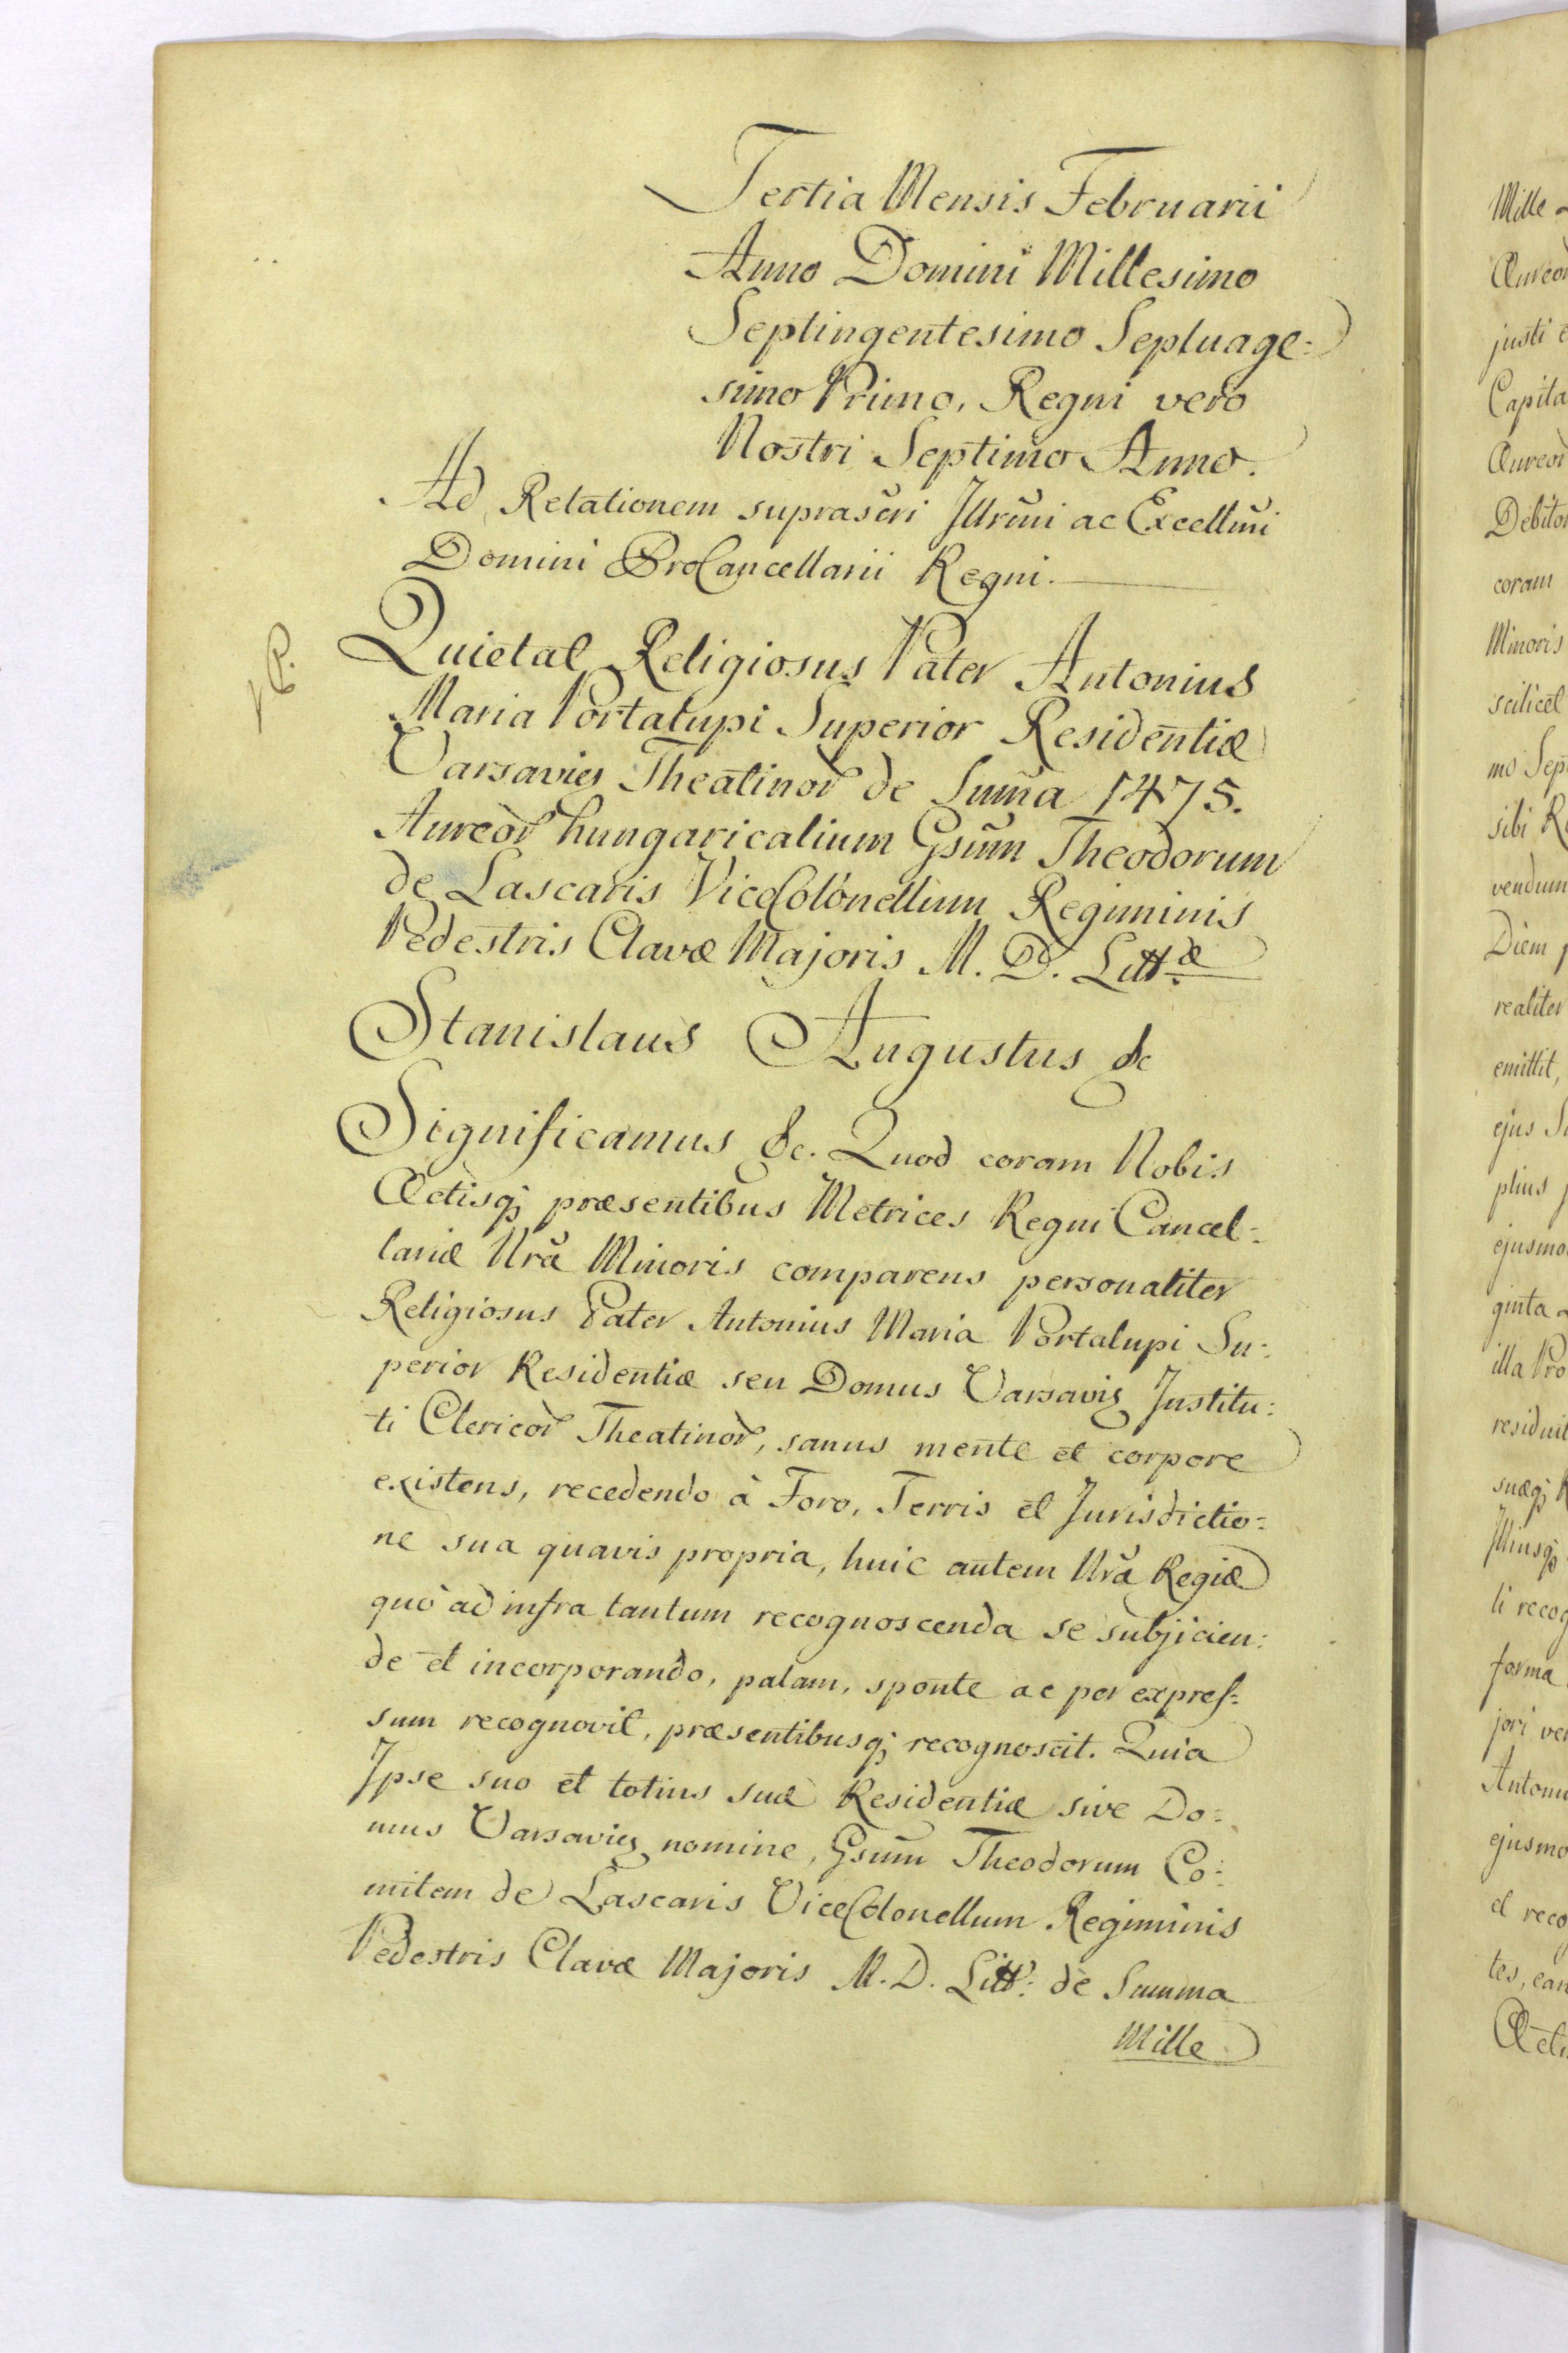 Tertia Mensis Februarii
Anno Domini Millesimo
Septingentesimo Septuage=
simo Primo, Regni vero
Nostri Septimo Anno.
Ad Relationem suprascri Illrmi ac Excellmi
Domini ProCancellarii Regni.
Quietat Religiosus Pater Antonius
Maria Portalupi Superior Residentiæ
Varsavien Theatinor de Summa 1475.
Aureor hungaricalium Gsum Theodorum
de Lascaris ViceColonellum Regiminis
Pedestris Clavæ Majoris M. D. Littæ
Stanislaus Augustus &c
Significamus &c. Quod coram Nobis
Actisq; præsentibus Metrices Regni Cancel=
lariæ Nræ Minoris comparens personaliter
Religiosus Pater Antonius Maria Portalupi Su=
perior Residentiæ seu Domus Varsavien Institu=
ti Clericor Theatinor, sanus mente et corpore
existens, recedendo à Foro, Terris et Jurisdictio=
ne sua quavis propria, huic autem Nræ Regiæ
quò ad infra tantum recognoscenda se subjicien=
do et incorporando, palam, sponte ac per expres=
sum recognovit, præsentibusq; recognoscit. Quia
Ipse suo et totius suæ Residentiæ sive Do=
mus Varsavien nomine, Gsum Theodorum Co=
mitem de Lascaris ViceColonellum Regiminis
Pedestris Clavæ Majoris M. D. Litt: de Summa
Mille
Mille
justi
Debitor
coram
Minoris
scilicet
mo Sep
sibi
vendum
Diem
realiter
emittit,
ejus
plius
ejusmo
ginta
illa Pro
residuit
suæq;
Illiusq;
li recog
forma
jori ver
Antoni
ejusmo
et reco
tes, ean
Acti